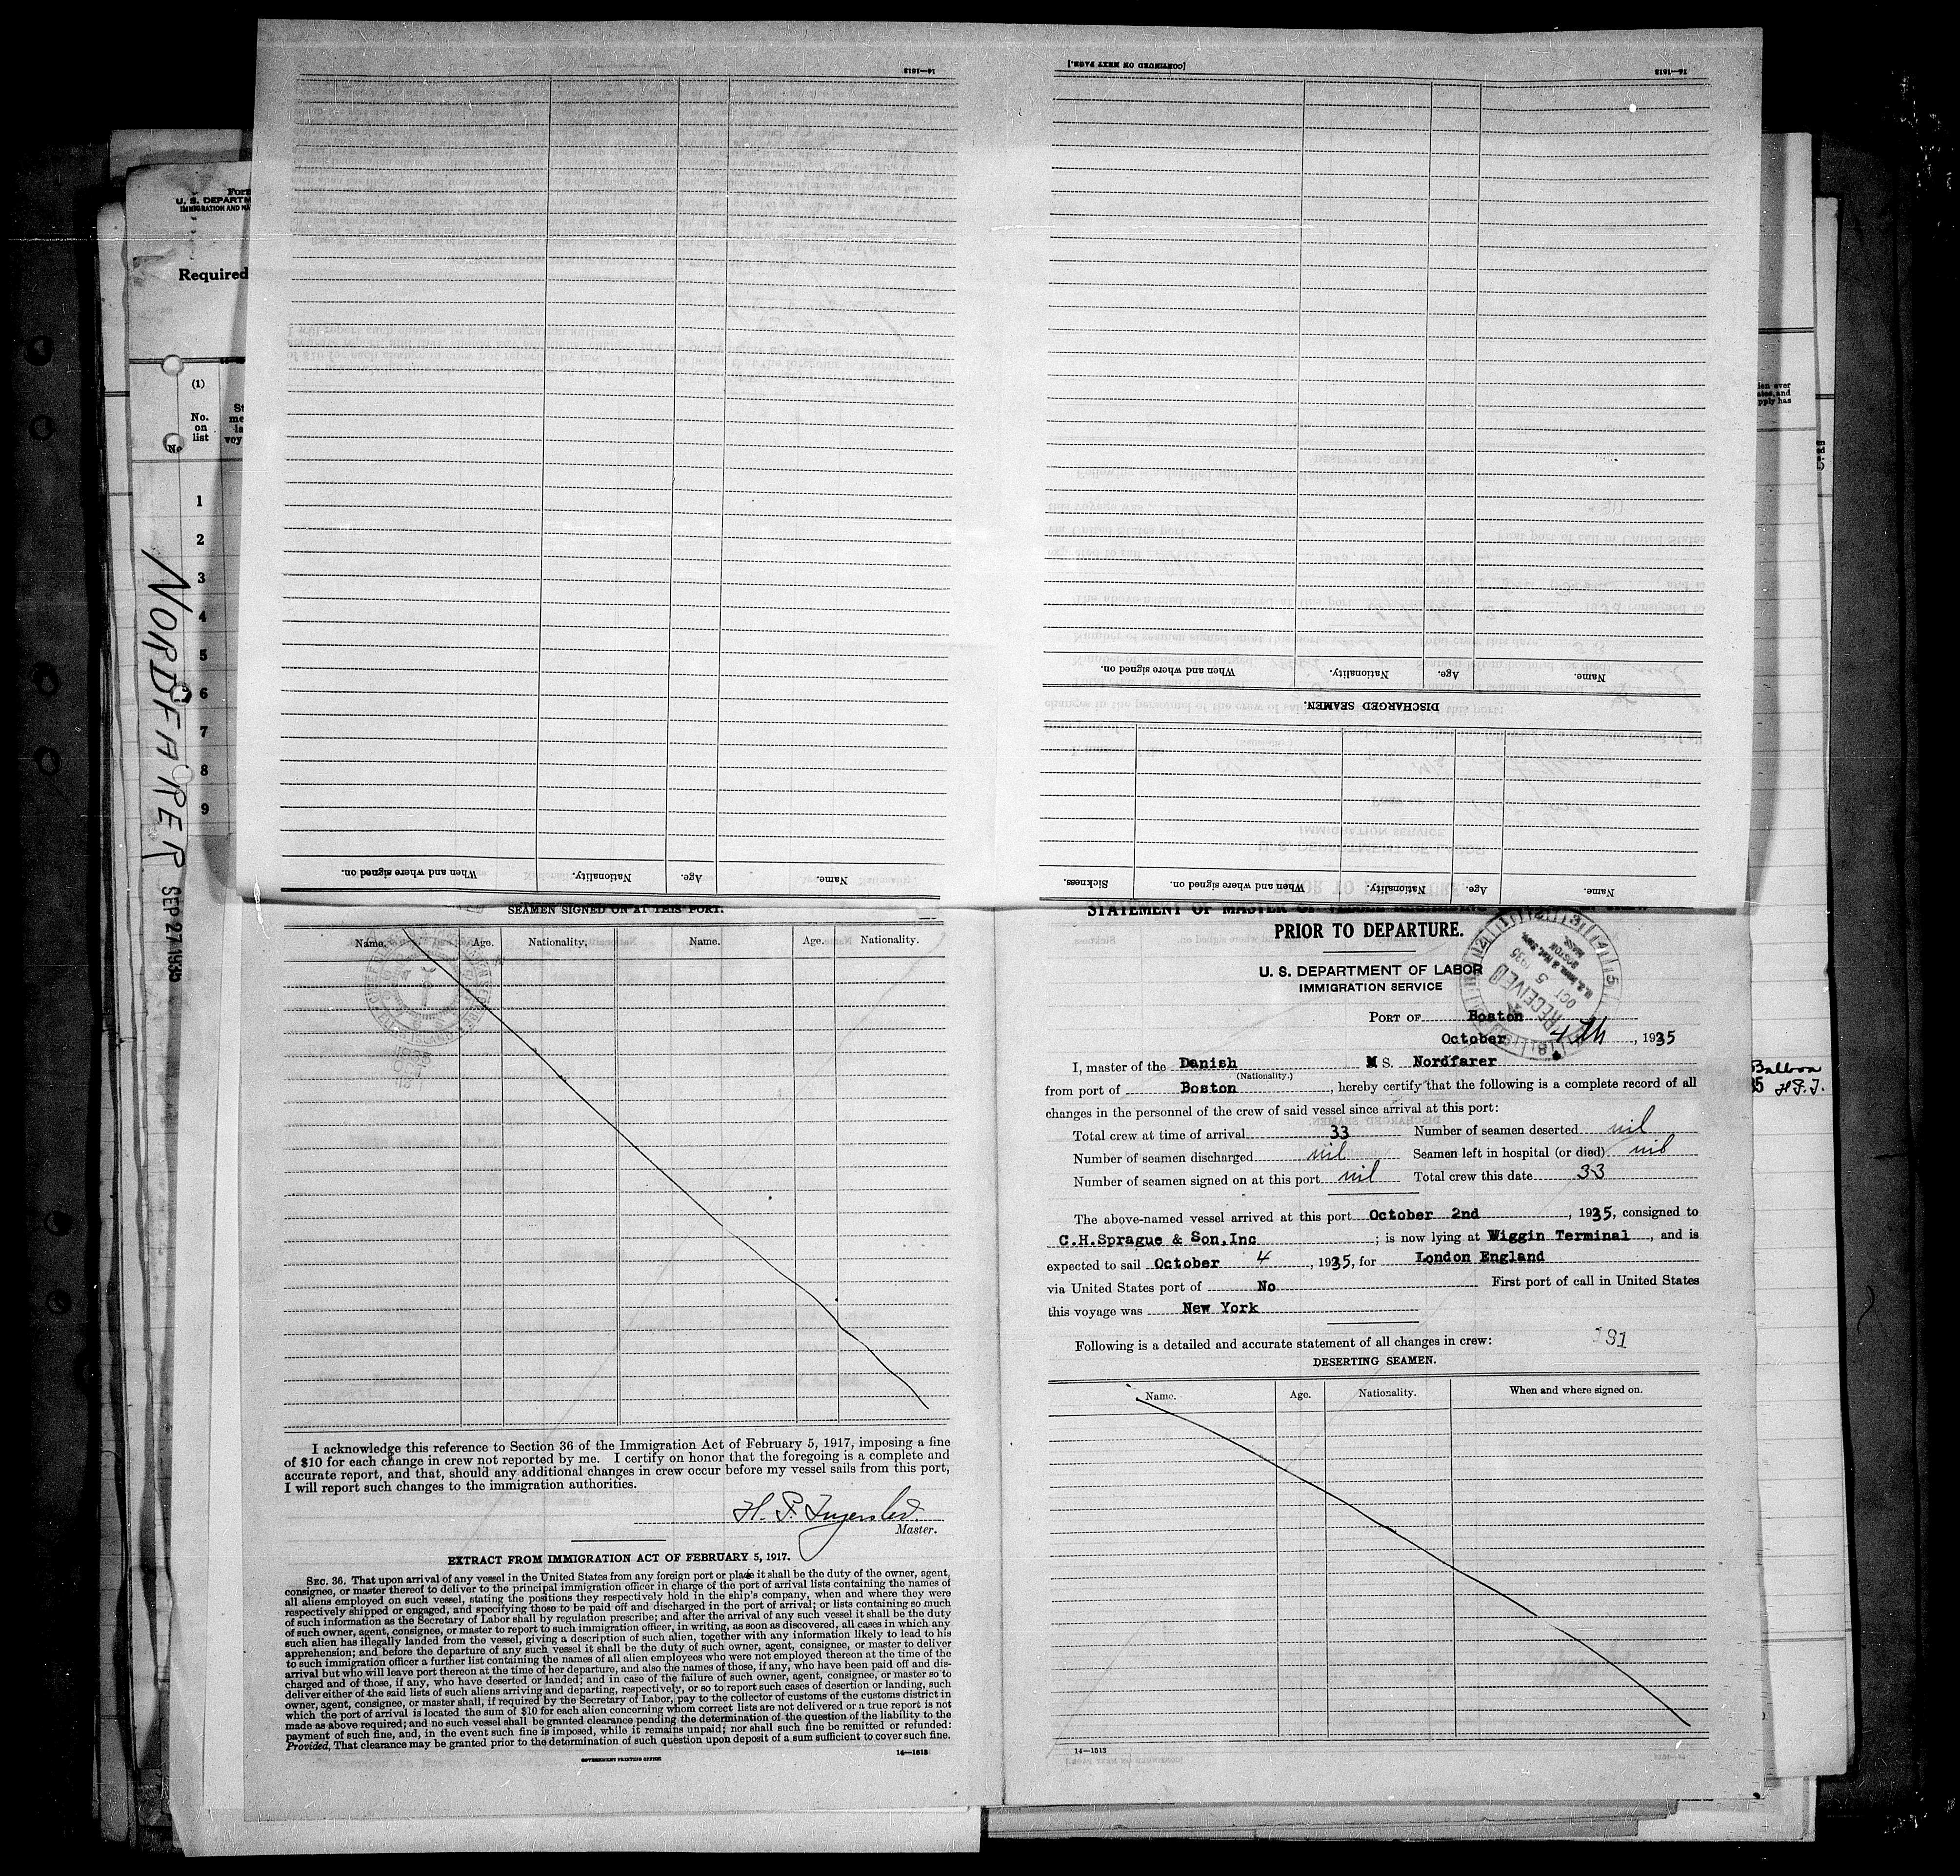 [CONTINUED ON NEXT PAGE.]
14—1613
14—1613
Form
U. S. DEPARTM
IMMIGRATION AND NA
Required
(1)
No.
on
list
St
me
la
voy
No
1
2
3
4
5
6
7
8
9
NORDFARER
SEP 27 1935
ien ever
ates, and
pply has
When and where signed on. Nationality. Age. Name.
DISCHARGED SEAMEN.
Sickness. When and where signed on. Nationality. Age. Name.
When and where signed on. Nationality. Age. Name.
SEAMEN SIGNED ON AT THIS PORT.
Name. Age. Nationality. Name. Age. Nationality.
I acknowledge this reference to Section 36 of the Immigration Act of February 5, 1917, imposing a fine
of $10 for each change in crew not reported by me. I certify on honor that the foregoing is a complete and
accurate report, and that, should any additional changes in crew occur before my vessel sails from this port,
I will report such changes to the immigration authorities.
H. P.
Master.
EXTRACT FROM IMMIGRATION ACT OF FEBRUARY 5, 1917.
SEC. 36. That upon arrival of any vessel in the United States from any foreign port or place it shall be the duty of the owner, agent,
consignee, or master thereof to deliver to the principal immigration officer in charge of the port of arrival lists containing the names of
all aliens employed on such vessel, stating the positions they respectively hold in the ship's company, when and where they were
respectively shipped or engaged, and specifying those to be paid off and discharged in the port of arrival; or lists containing so much
of such information as the Secretary of Labor shall by regulation prescribe; and after the arrival of any such vessel it shall be the duty
of such owner, agent, consignee, or master to report to such immigration officer, in writing, as soon as discovered, all cases in which any
such alien has illegally landed from the vessel, giving a description of such alien, together with any information likely to lead to his
apprehension; and before the departure of any such vessel it shall be the duty of such owner, agent, consignee, or master to deliver
to such immigration officer a further list containing the names of all alien employees who were not employed thereon at the time of the
arrival but who will leave port thereon at the time of her departure, and also the names of those, if any, who have been paid off and dis-
charged and of those, if any, who have deserted or landed; and in case of the failure of such owner, agent, consignee, or master so to
deliver either of the said lists of such aliens arriving and departing, respectively, or so to report such cases of desertion or landing, such
owner, agent, consignee, or master shall, if required by the Secretary of Labor, pay to the collector of customs of the customs district in
which the port of arrival is located the sum of $10 for each alien concerning whom correct lists are not delivered or a true report is not
made as above required; and no such vessel shall be granted clearance pending the determination of the question of the liability to the
payment of such fine, and, in the event such fine is imposed, while it remains unpaid; nor shall such fine be remitted or refunded:
Provided, That clearance may be granted prior to the determination of such question upon deposit of a sum sufficient to cover such fine.
GOVERNMENT PRINTING OFFICE 14—1613
STATEMENT OF MASTER OF
PRIOR TO DEPARTURE.
U. S. DEPARTMENT OF LABOR
IMMIGRATION SERVICE
RECEIVED
OCT 5 1935
BOSTON
MASS.
PORT OF Boston
October 4th, 1935
I, master of the Danish M S. Nordfarer
(Nationality.)
from port of Boston, hereby certify that the following is a complete record of all
changes in the personnel of the crew of said vessel since arrival at this port:
Total crew at time of arrival 33 Number of seamen deserted nil
Number of seamen discharged nil Seamen left in hospital (or died) nil
Number of seamen signed on at this port nil Total crew this date 33
The above-named vessel arrived at this port October 2nd, 1935, consigned to
C.H.Sprague & Son,Inc; is now lying at Wiggin Terminal, and is
expected to sail October 4, 1935, for London England
via United States port of No First port of call in United States
this voyage was New York
Following is a detailed and accurate statement of all changes in crew:
DESERTING SEAMEN.
Name. Age. Nationality. When and where signed on.
14—1613
Balboa
35 H.P.I.